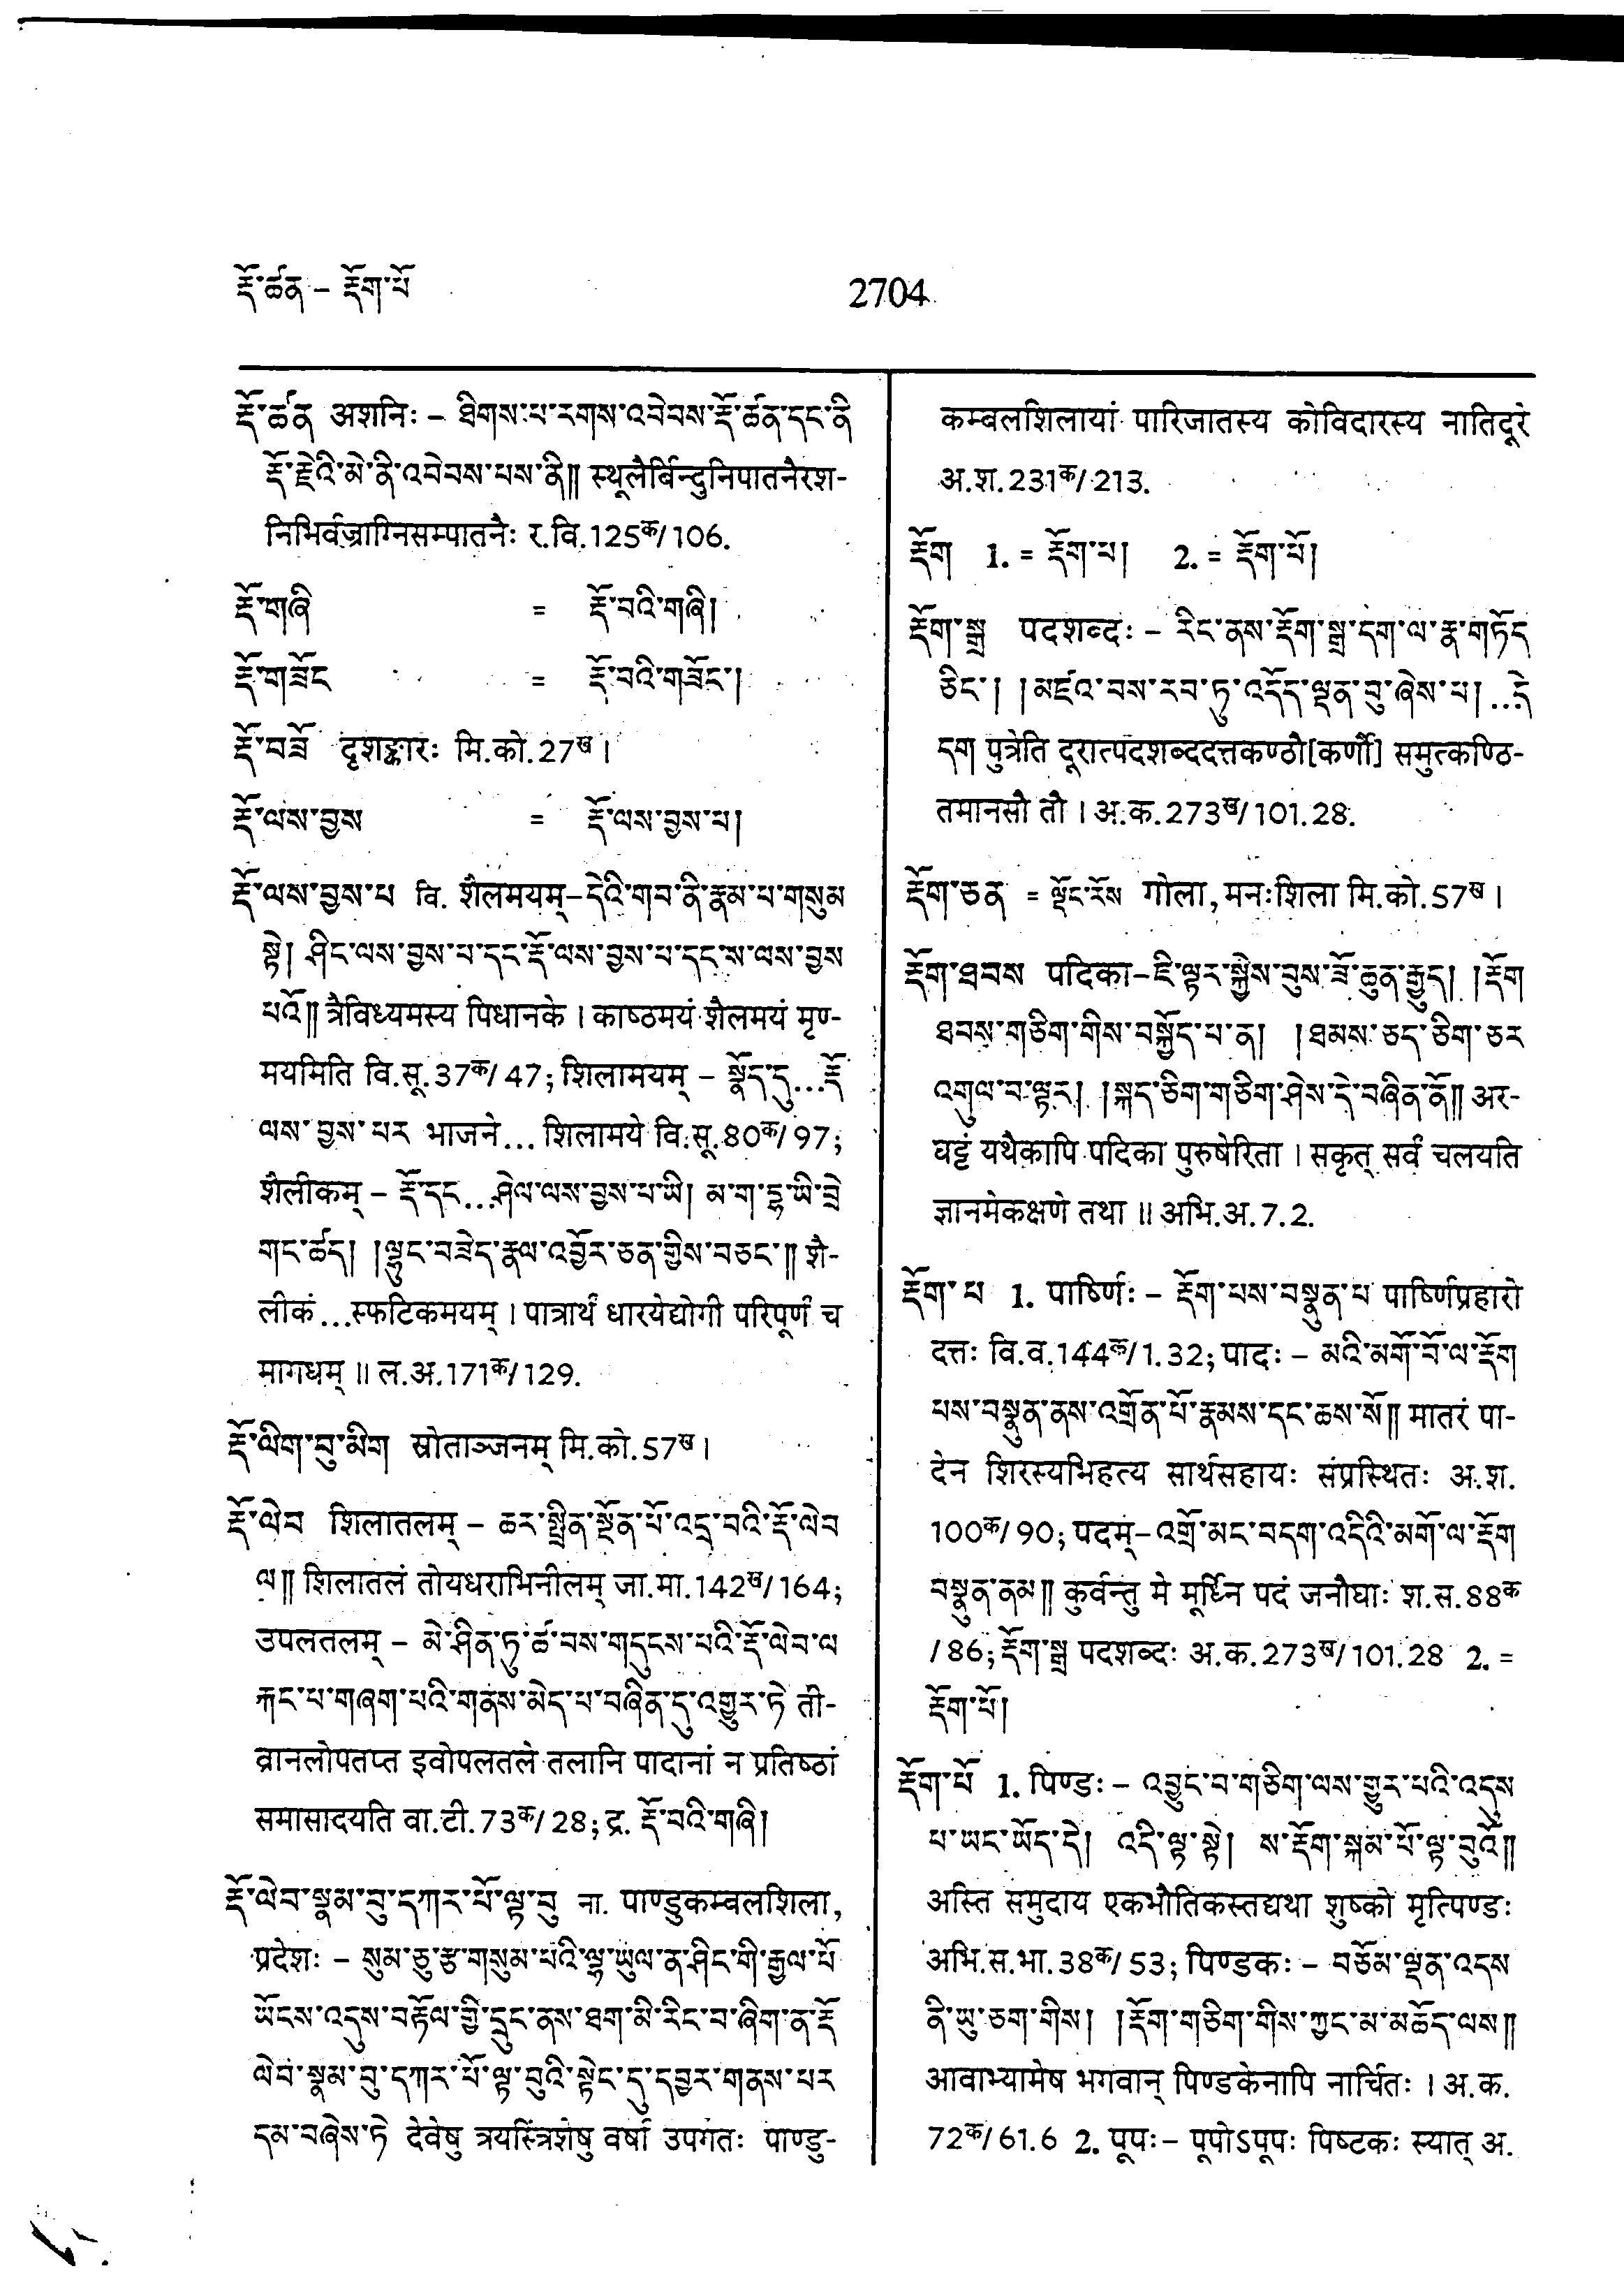 རྡོ་ཚན – རྡོག་པོ
2704
རྡོ་ཚན अशनिः – ཐིགས་པ་རགས་འབེབས་རྡོ་ཚན་དང་ནི
རྡོ་རྗེའི་མེ་ནི་འབེབས་པས་ནི༎ स्थूलैर्बिन्दुनिपातनैरश-
निभिर्वज्राग्निसम्पातनैः र.वि.125क/106.
རྡོ་གཞི = རྡོ་བའི་གཞི།
རྡོ་གཟོང = རྡོ་བའི་གཟོང་།
རྡོ་བཟོ दृशङ्कारः मि.को.27ख।
རྡོ་ལས་བྱས = རྡོ་ལས་བྱས་པ།
རྡོ་ལས་བྱས་པ वि. शैलमयम्–དེའི་གབ་ནི་རྣམ་པ་གསུམ
སྟེ། ཤིང་ལས་བྱས་པ་དང་རྡོ་ལས་བྱས་པ་དང་ས་ལས་བྱས
པའོ༎ त्रैविध्यमस्य पिधानके। काष्ठमयं शैलमयं मृण-
मयमिति वि.सू.37क/47; शिलामयम् – སྣོད་དུ...རྡོ
ལས་བྱས་པར भाजने... शिलामये वि.सू.80क/97;
शैलीकम् – རྡོ་དང...ཤེལ་ལས་བྱས་པ་ཡི། མ་ག་དྷ་ཡི་བྲེ
གང་ཚད། །ལྷུང་བཟེད་རྣལ་འབྱོར་ཅན་གྱིས་བཅང་༎ शै-
लीकं...स्फटिकमयम्। पात्रार्थं धारयेद्योगी परिपूर्णं च
मागधम्॥ ल.अ.171क/129.
རྡོ་ལིག་བུ་མིག स्रोताञ्जनम् मि.को.57ख।
རྡོ་ལེབ शिलातलम् – ཆར་སྤྲིན་སྔོན་པོ་འདྲ་བའི་རྡོ་ལེབ
ལ༎ शिलातलं तोयधराभिनीलम् जा.मा.142ख/164;
उपलतलम् – མེ་ཤིན་ཏུ་ཚ་བས་གདུངས་པའི་རྡོ་ལེབ་ལ
རྐང་པ་གཞག་པའི་གནས་མེད་པ་བཞིན་དུ་འགྱུར་ཏེ ती-
व्रानलोपतप्त इवोपलतले तलानि पादानां न प्रतिष्ठां
समासादयति वा.टी.73क/28; द्र. རྡོ་བའི་གཞི།
རྡོ་ལེབ་སྣམ་བུ་དཀར་པོ་ལྟ་བུ ना. पाण्डुकम्बलशिला,
प्रदेशः – སུམ་ཅུ་རྩ་གསུམ་པའི་ལྷ་ཡུལ་ན་ཤིང་གི་རྒྱལ་པོ
ཡོངས་འདུས་བརྟོལ་གྱི་དྲུང་ནས་ཐག་མི་རིང་བ་ཞིག་ན་རྡོ
ལེབ་སྣམ་བུ་དཀར་པོ་ལྟ་བུའི་སྟེང་དུ་དབྱར་གནས་པར
དམ་བཞེས་ཏེ देवेषु त्रयस्त्रिंशेषु वर्षा उपगतः पाण्डु-
कम्बलशिलायां पारिजातस्य कोविदारस्य नातिदूरे
अ.श.231क/213.
རྡོག 1. = རྡོག་པ། 2. = རྡོག་པོ།
རྡོག་སྒྲ पदशब्दः – རིང་ནས་རྡོག་སྒྲ་དག་ལ་རྣ་གཏོད
ཅིང་། །མཛའ་བས་རབ་ཏུ་འདོད་ལྡན་བུ་ཞེས་པ། ...དེ
དག पुत्रेति दूरात्पदशब्ददत्तकण्ठौ[कर्णौ] समुत्कण्ठि-
तमानसौ तौ। अ.क.273ख/101.28.
རྡོག་ཅན = ལྡོང་རོས गोला, मनःशिला मि.को.57ख।
རྡོག་ཐབས पदिका–ཇི་ལྟར་སྐྱེས་བུས་ཟོ་ཆུན་རྒྱུད། །རྡོག
ཐབས་གཅིག་གིས་བསྐྱོད་པ་ན། །ཐམས་ཅད་ཅིག་ཅར
འགུལ་བ་ལྟར། །སྐད་ཅིག་གཅིག་ཤེས་དེ་བཞིན་ནོ༎ अर-
घट्टं यथैकापि पदिका पुरुषेरिता। सकृत् सर्वं चलयति
ज्ञानमेकक्षणे तथा॥ अभि.अ.7.2.
རྡོག་པ 1. पार्ष्णिः – རྡོག་པས་བསྣུན་པ पार्ष्णिप्रहारो
दत्तः वि.व.144क/1.32; पादः – མའི་མགོ་བོ་ལ་རྡོག
པས་བསྣུན་ནས་འགྲོན་པོ་རྣམས་དང་ཆས་སོ༎ मातरं पा-
देन शिरस्यभिहत्य सार्थसहायः संप्रस्थितः अ.श.
100क/90; पदम्–འགྲོ་མང་བདག་འདིའི་མགོ་ལ་རྡོག
བསྣུན་ནམ༎ कुर्वन्तु मे मूर्ध्नि पदं जनौघाः श.स.88क
/86; རྡོག་སྒྲ पदशब्दः अ.क.273ख/101.28 2. =
རྡོག་པོ།
རྡོག་པོ 1. पिण्डः – འབྱུང་བ་གཅིག་ལས་གྱུར་པའི་འདུས
པ་ཡང་ཡོད་དེ། འདི་ལྟ་སྟེ། ས་རྡོག་སྐམ་པོ་ལྟ་བུའོ༎
अस्ति समुदाय एकभौतिकस्तद्यथा शुष्को मृत्पिण्डः
अभि.स.भा.38क/53; पिण्डकः – བཅོམ་ལྡན་འདས
ནི་ཡུ་ཅག་གིས། །རྡོག་གཅིག་གིས་ཀྱང་མ་མཆོད་ལས༎
आवाभ्यामेष भगवान् पिण्डकेनापि नार्चितः। अ.क.
72क/61.6 2. पूपः– पूपोऽपूपः पिष्टकः स्यात् अ.